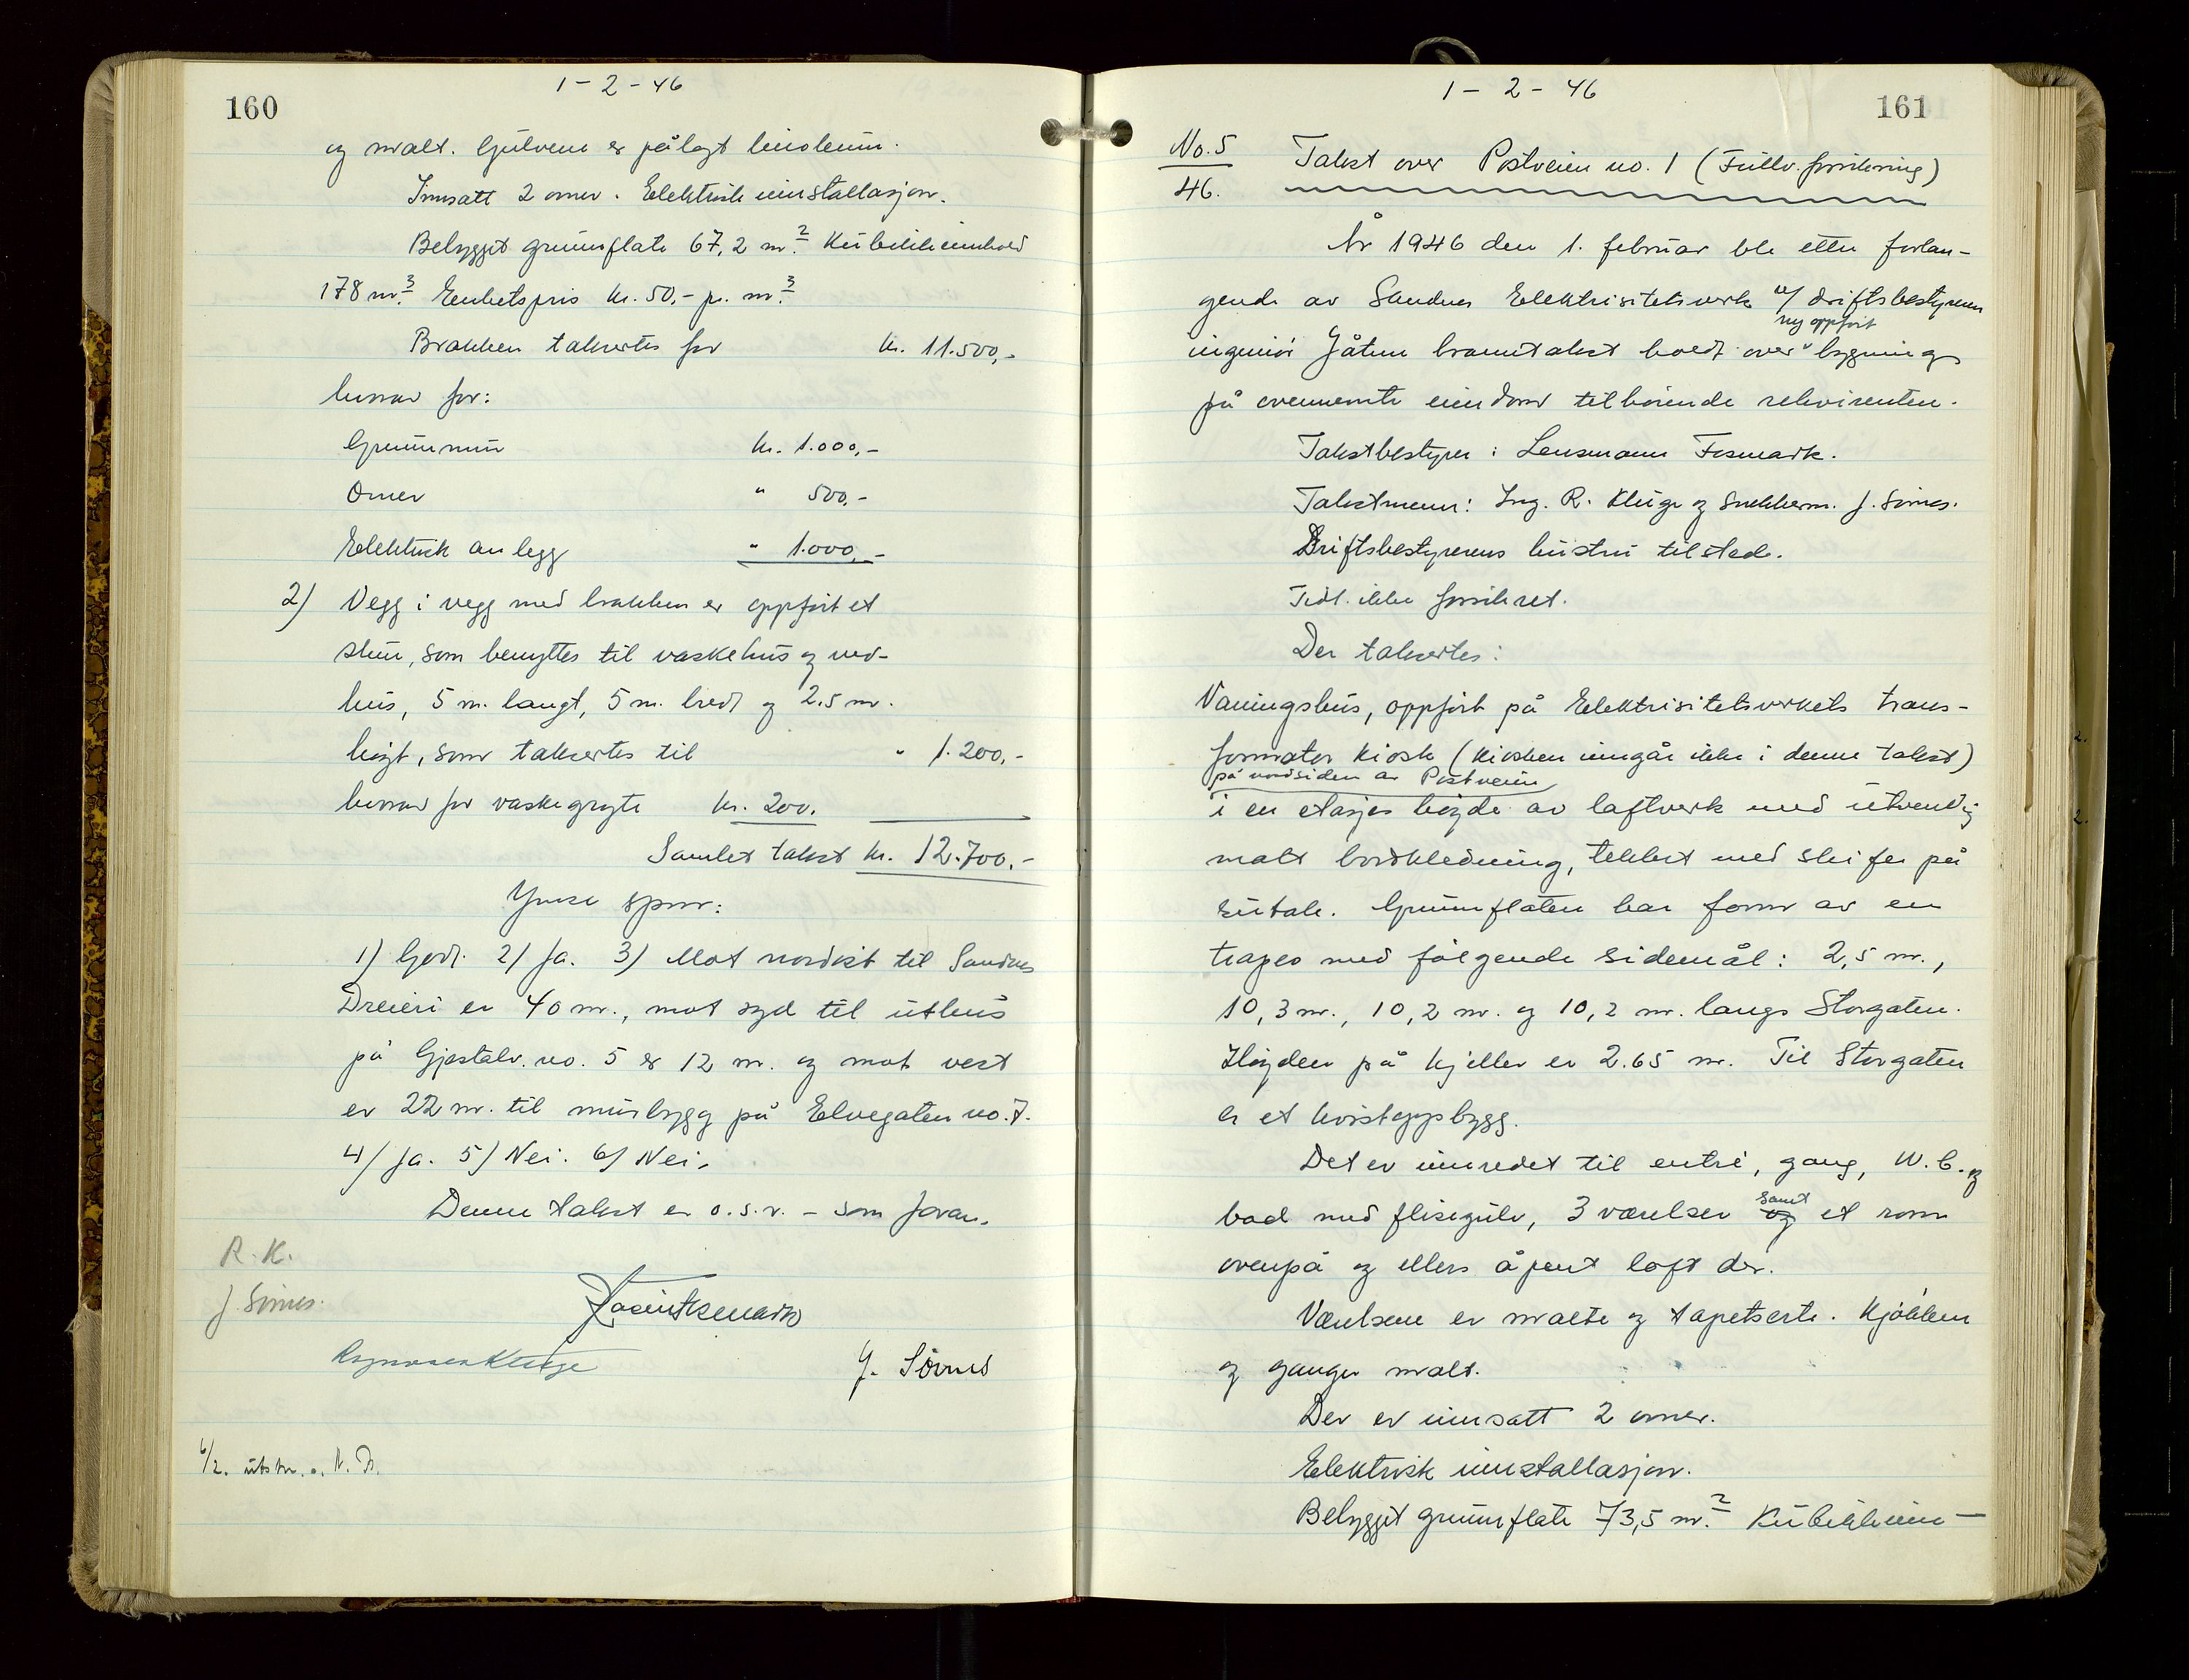 160
1-2-46
og malt. Gulvene er pålagt linoleum.
Innsatt 2 omner. Elektrisk innstallasjon.
Bebygget grunnflate 67,2 m.² Kubikkinnhold
178 m.³ Enhetspris kr. 50,- pr. m.³
Brakken takseres for kr. 11.500,-
herav for:
Grunnmur kr. 1.000,-
Omner " 500,-
Elektrisk anlegg " 1.000,-
2) Vegg i vegg med brakken er oppført et
skur, som benyttes til vaskehus og ved-
hus, 5 m. langt, 5 m. bredt og 2.5 m.
høgt, som takseres til " 1.200,-
herav for vaskegryte kr. 200.
Samlet takst kr. 12.700.-
Ymse spm:
1) Godt. 2) Ja. 3) Mot nordost til Sandnes
Dreieri er 40 m., mot syd til uthus
på Gjestalv. no. 5 er 12 m. og mot vest
er 22 m. til murbygg på Elvegaten no. 7.
4) Ja. 5) Nei. 6) Nei.
Denne takst er o.s.v. - som foran.
R. K.
J. Sørnes.
Ragnvald Kluge
J. Sørnes
6/2. utskr.
1-2-46
161
No. 5
46.
Takst over Postveien no. 1 (Fullv. forsikring)
År 1946 den 1. februar ble etter forlan-
gende av Sandnes Elektrisitetsverk v/ driftsbestyreren
ny oppført
ingeniør Jåtun branntakst holdt over bygning
på ovennevnte eiendom tilhørende rekvirenten.
Takstbestyrer: Lensmann Fosmark.
Takstmenn: Ing. R. Kluge og snekkerm. J. Sørnes.
Driftsbestyrerens hustru tilstede.
Tidl. ikke forsikret.
Der takseres:
Våningshus, oppført på Elektrisitetsverkets trans-
formator kiosk (kiosken inngår ikke i denne takst)
på nordsiden av Postveien
i en etasjes høyde av laftverk med utvendig
malt bordkledning, tekket med skifer på
sutak. Grunnflaten har form av en
trapes med følgende sidemål: 2,5 m.,
10,3 m., 10,2 m. og 10,2 m. langs Storgaten.
Høyden på kjeller er 2.65 m. Til Storgaten
er et kvistoppbygg.
Det er innredet til entré, gang, W.C. og
bad med flisegulv, 3 værelser og samt et rom
ovenpå og ellers åpent loft der.
Værelsene er malte og tapetserte. Kjøkken
og ganger malt.
Der er innsatt 2 omner.
Elektrisk innstallasjon.
Bebygget grunnflate 73,5 m.² Kubikkinn-